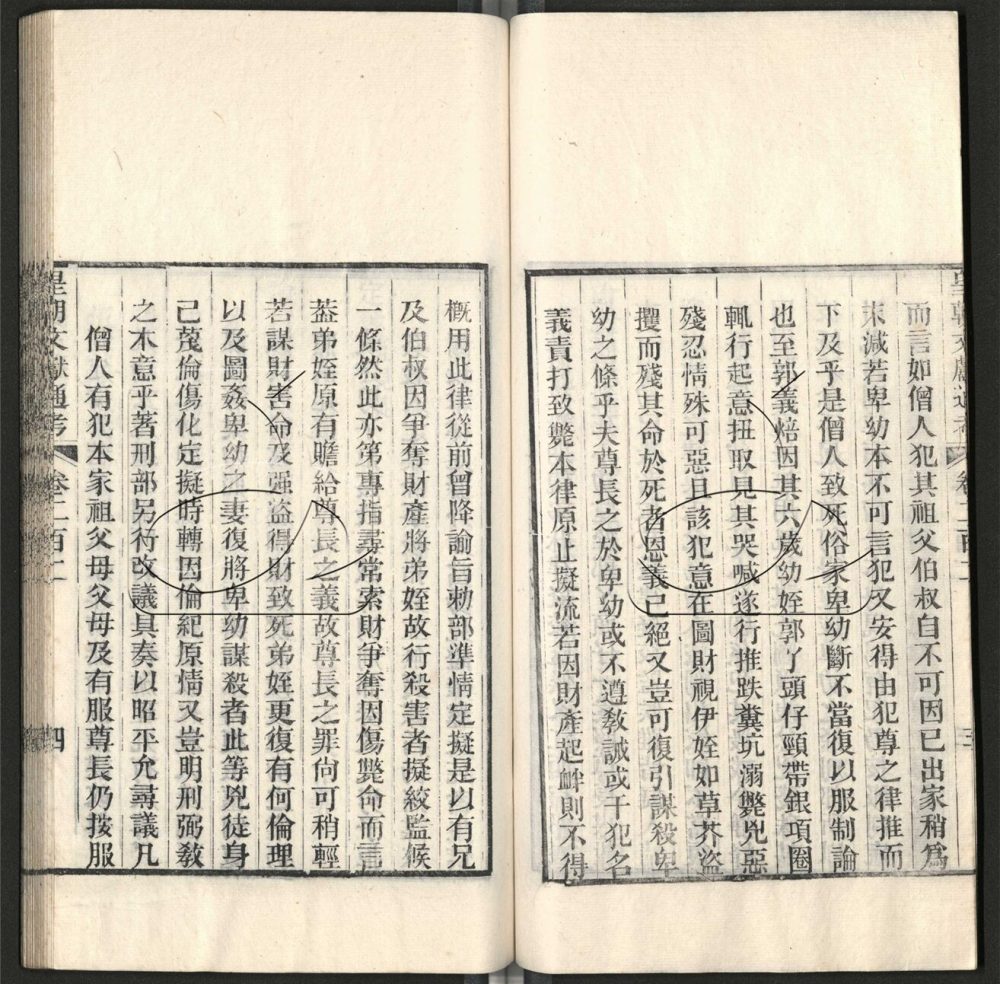 而言如僧人犯其祖父伯叔自不可因已出家稍為
末減若卑幼本不可言犯又安得由犯尊之律推而
下及乎是僧人致死俗家卑幼斷不當復以服制論
也至郭義焙因其六歲幼姪郭丫頭仔頸帶銀項圈
輒行起意扭取見其哭喊遂行推跌糞坑溺斃兇惡
殘忍情殊可惡且該犯意在圖財視伊姪如草芥盜
攫而殘其命於死者恩義已絕又豈可復引謀殺卑
幼之條乎夫尊長之於卑幼或不遵教誡或干犯名
義責打致斃本律原止擬流若因財產起衅則不得
概用此律從前曾降諭旨勅部準情定擬是以有兄
及伯叔因爭奪財產將弟姪故行殺害者擬絞監候
一條然此亦第專指尋常索財爭奪因傷斃命而言
蓋弟姪原有贍給尊長之義故尊長之罪尙可稍輕
若謀財害命及强盜得財致死弟姪更復有何倫理
以及圖姦卑幼之妻復將卑幼謀殺者此等兇徒身
己蔑倫傷化定擬時轉因倫紀原情又豈明刑弼敎
之本意乎著刑部另行改議具奏以昭平允尋議凡
僧人有犯本家祖父母父母及有服尊長仍按服
皇朝文獻通考 卷二百二 四